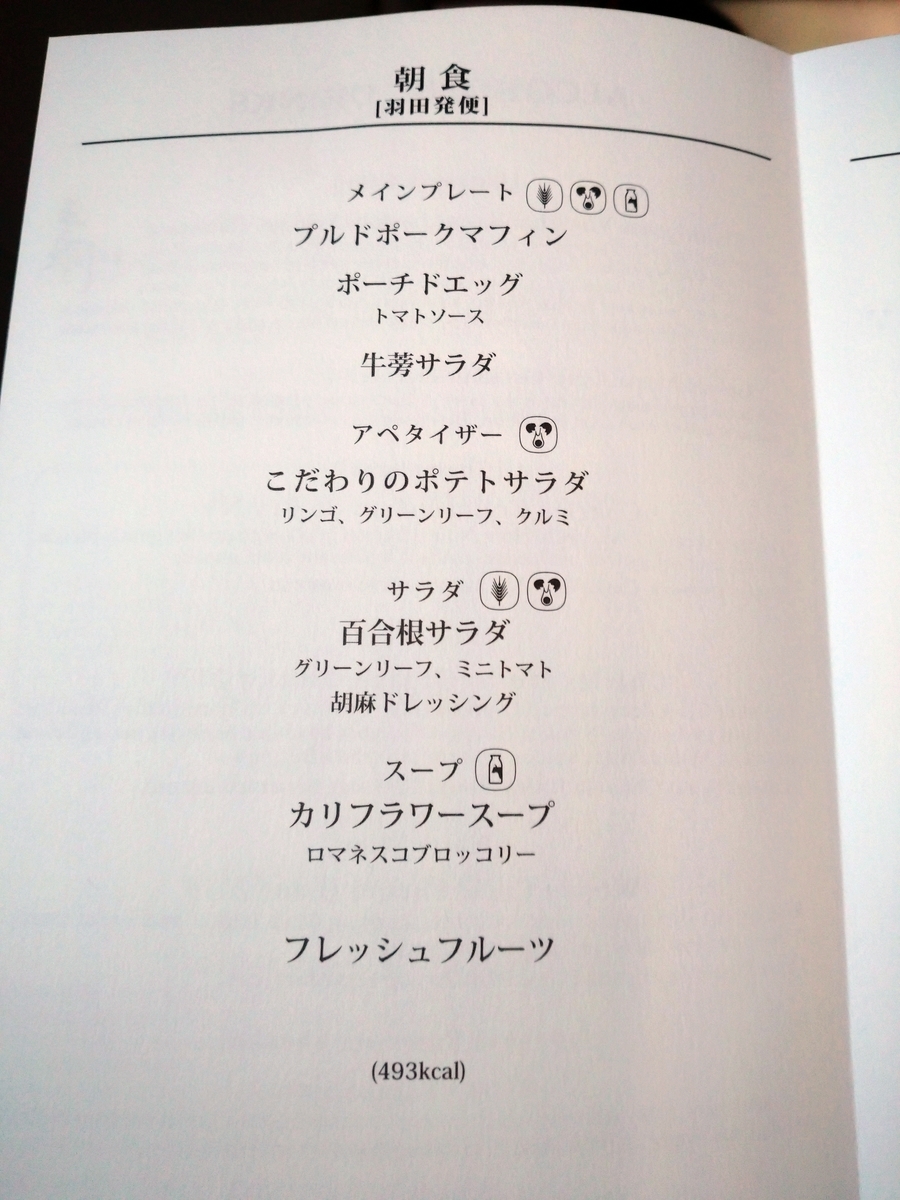 朝食
[羽田発便]
メインプレート
プルドポークマフィン
ポーチドエッグ
トマトソース
牛蒡サラダ
アペタイザー
こだわりのポテトサラダ
リンゴ、グリーンリーフ、クルミ
サラダ
百合根サラダ
グリーンリーフ、ミニトマト
胡麻ドレッシング
スープ
カリフラワースープ
ロマネスコブロッコリー
フレッシュフルーツ
(493kcal)